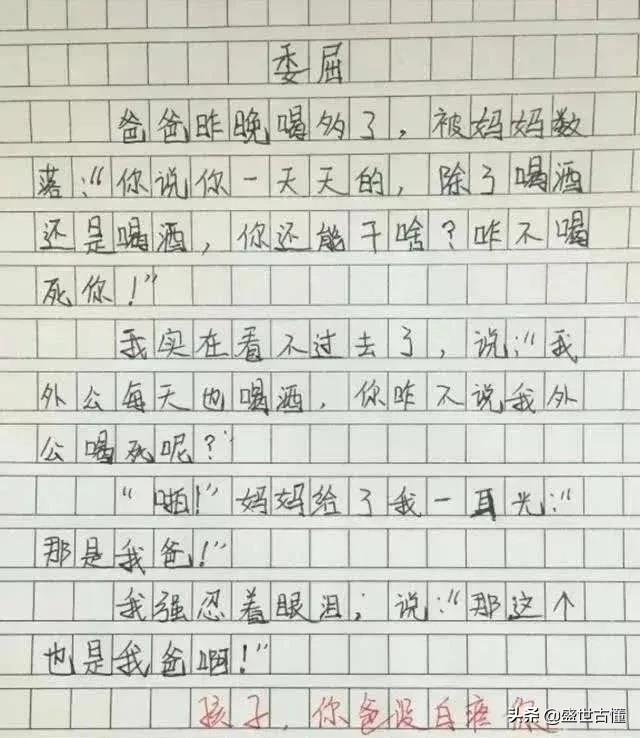 委屈
爸爸昨晚喝多了，被妈妈数
落：“你说你一天天的，除了喝酒
还是喝酒，你还能干啥？咋不喝
死你！”
我实在看不过去了，说：“我
外公每天也喝酒，你咋不说我外
公喝死呢？”
“啪！”妈妈给了我一耳光：“
那是我爸！”
我强忍着眼泪；说：“那这个
也是我爸啊！”
孩子，你爸没白疼你
头条 @盛世古董